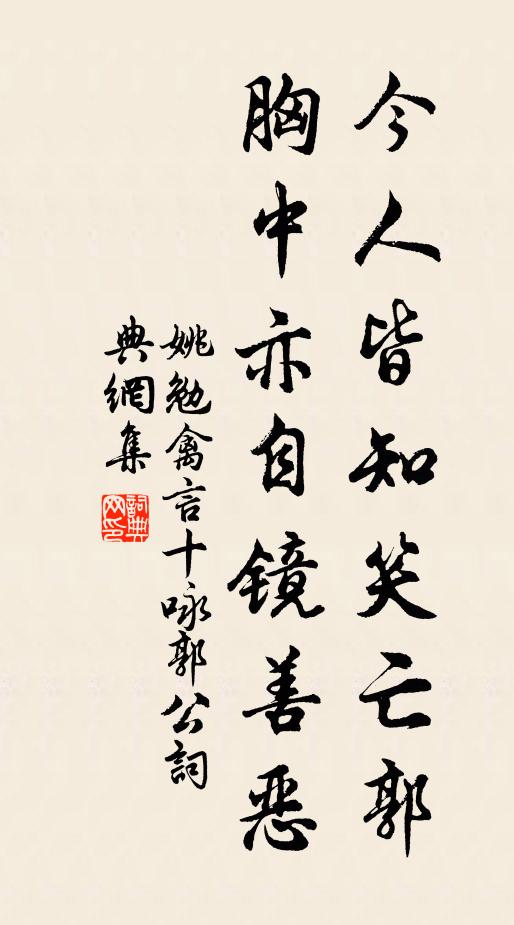 今人皆知笑亡郭
胸中亦自镜善恶
姚勉禽言十咏郭公詞
典網集
詞典網印